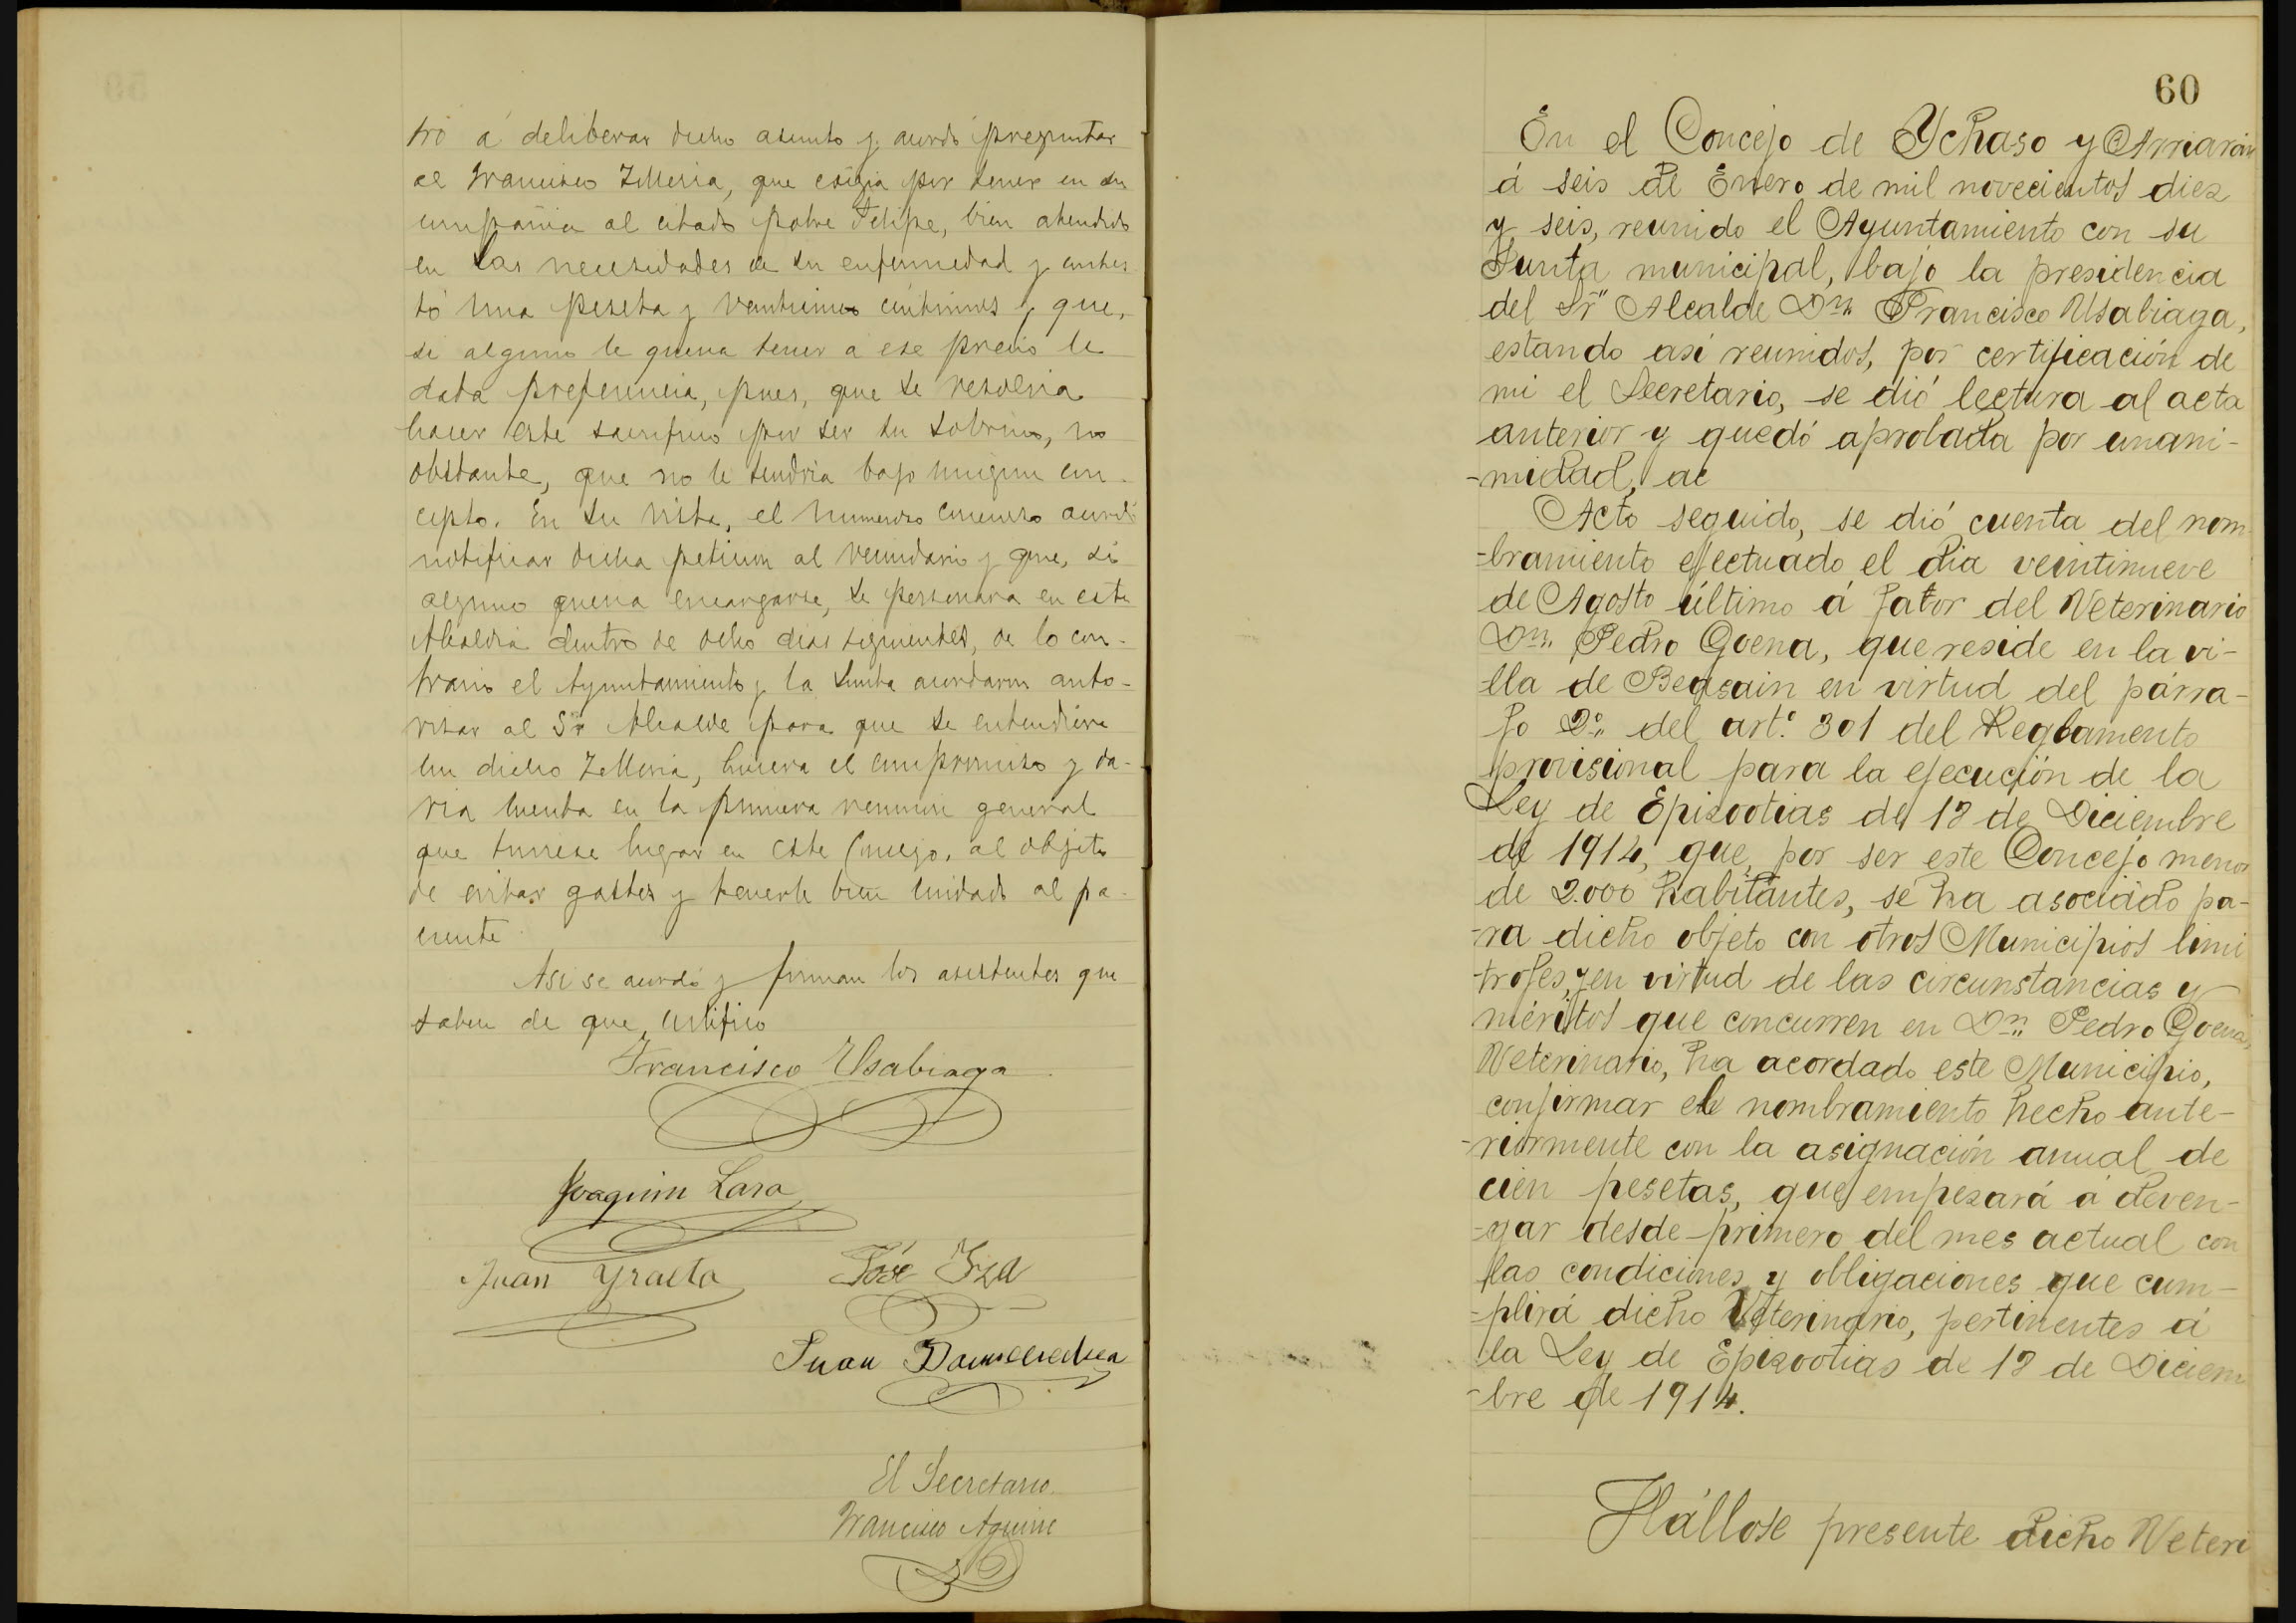 tró á deliberar dicho asunto y acordó preguntar
al Francisco Zelleria, que exigia por tener en su
compañia al citado pobre Felipe, bien atendido
en las necesidades de su enfermedad y contes
tó una peseta y veinticinco céntimos y que,
si alguno le queria tener a ese precio le
daba preferencia, pues, que se resolvia
hacer este sacrificio por ser su sobrino, no
obstante, que no le tendria bajo ningun con-
cepto. En su vista, el numeroso concurso acordó
notificar dicha peticion al vecindario y que, si
alguno queria encargarse, se personara en esta
Alcaldia dentro de ocho dias siguientes, de lo con-
trario el Ayuntamiento y la Junta acordaron auto-
rizar al Sr Alcalde para que se entendiera
con dicho Zelleria, hiciera el compromiso y da-
ria cuenta en la primera reunion general
que tuviese lugar en este Concejo, al objeto
de evitar gastos y tenerle bien cuidado al pa-
ciente
Asi se acordó y firman los asistentes que
saben de que, certifico
Francisco Usabiaga
Joaquin Lasa
Juan Yraeta José Yza
Juan
El Secretario
Francisco Aguirre
60
En el Concejo de Ychaso y Arriarán
á seis de Enero de mil novecientos diez
y seis, reunido el Ayuntamiento con su
Junta municipal, bajo la presidencia
del Sr Alcalde Dn Francisco Usabiaga,
estando así reunidos, por certificación de
mi el Secretario, se dió lectura al acta
anterior y quedó aprobada por unani-
-midad, ac
Acto seguido, se dió cuenta del nom-
-bramiento efectuado el dia veintinueve
de Agosto último á favor del Veterinario
Dn Pedro Goena, que reside en la vi-
-lla de Beasain en virtud del párra-
fo 2º del artº 301 del Reglamento
provisional para la ejecución de la
Ley de Epizootias de 18 de Diciembre
de 1914, que, por ser este Concejo menor
de 2.000 habitantes, se ha asociado pa-
-ra dicho objeto con otros Municipios limi
-trofes, y en virtud de las circunstancias y
méritos que concurren en Dn Pedro Goena,
Veterinario, ha acordado este Municipio,
confirmar el nombramiento hecho ante-
-riormente con la asignación anual de
cien pesetas, que empezará á deven-
-gar desde primero del mes actual con
las condiciones y obligaciones que cum-
-plirá dicho Veterinario, pertinentes á
la Ley de Epizootias de 18 de Diciem
-bre de 1914.
Hállose presente dicho Veteri